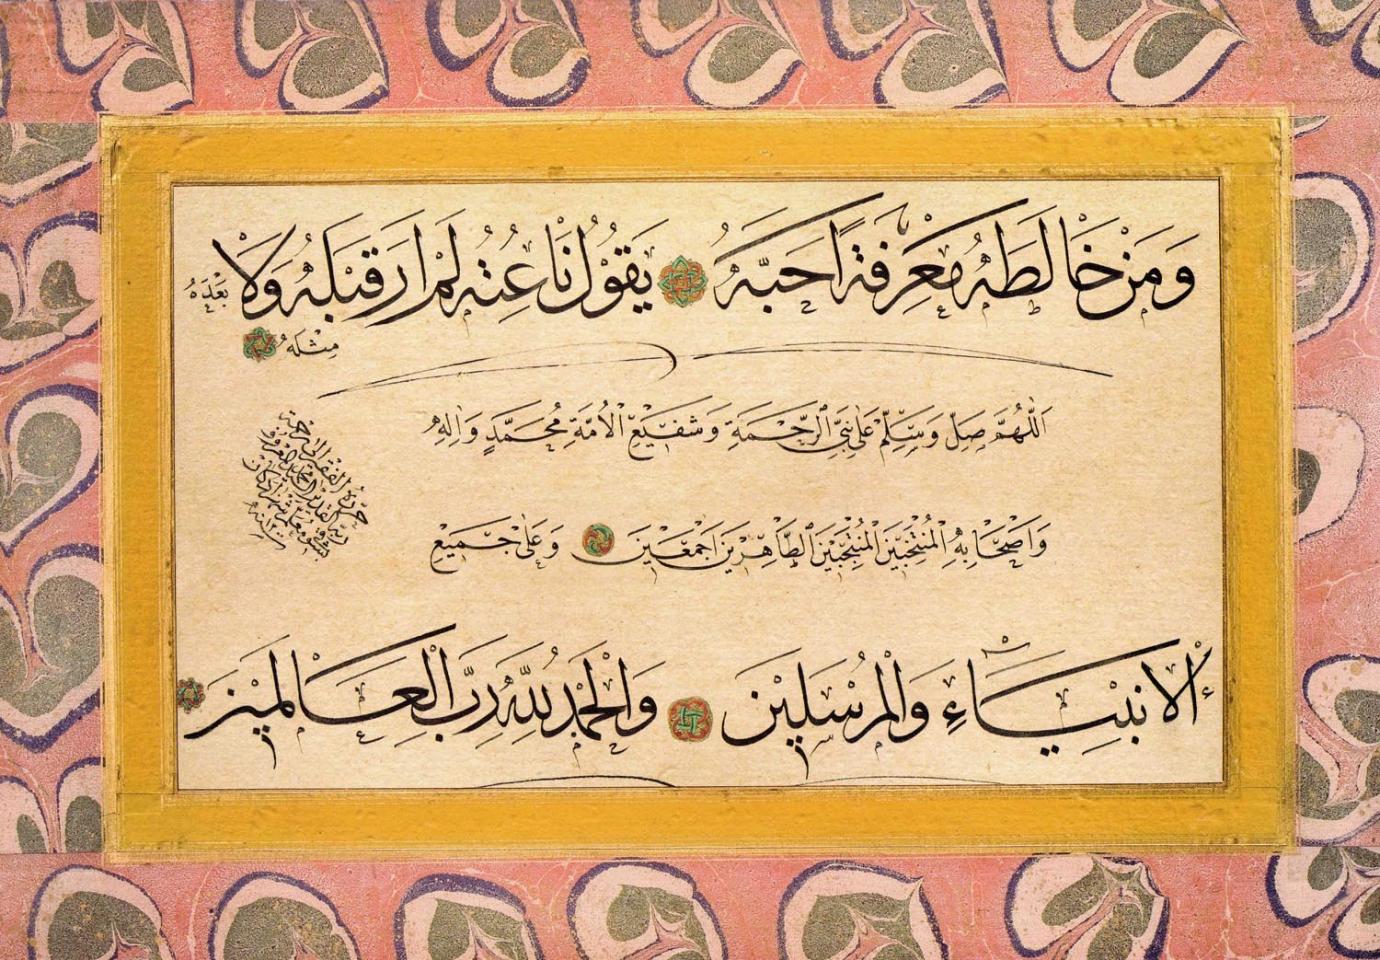 وَمَنْ خَالَطَهُ مَعْرِفَةً اَحَبَّهُ يَقُوْلُ نَاعِتُهُ لَمْ اَرَ قَبْلَهُ وَلَا بَعْدَهُ
مِثْلَهُ
اَللّٰهُمَّ صَلِّ وَسَلِّمْ عَلٰى نَبِيِّ الرَّحْمَةِ وَشَفِيْعِ الْاُمَّةِ مُحَمَّدٍ وَاٰلِهِ
وَاَصْحَابِهِ الْمُنْتَخَبِيْنَ الْمُنْتَجَبِيْنَ الطَّاهِرِيْنَ اَجْمَعِيْنَ وَعَلٰى جَمِيْعِ
الْاَنْبِيَاءِ وَالْمُرْسَلِيْنَ وَالْحَمْدُ لِلّٰهِ رَبِّ الْعَالَمِيْنَ
حرره الفقير الى رحمة
ربه القدير